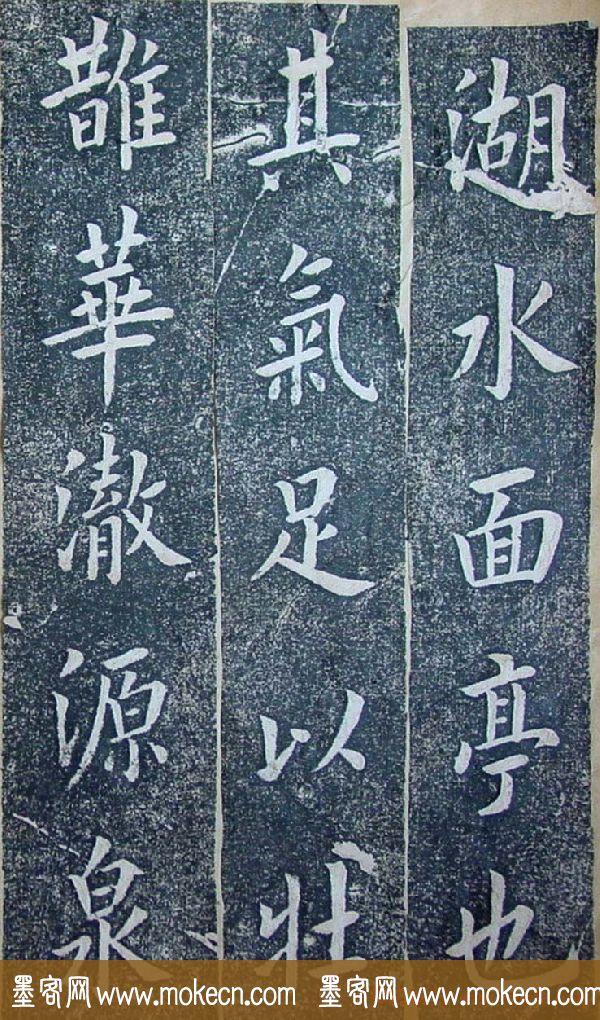 湖水面亭也
其氣足以壯
䧿華澈源泉
墨客网 www.mokecn.com 墨客网 www.mokecn.com